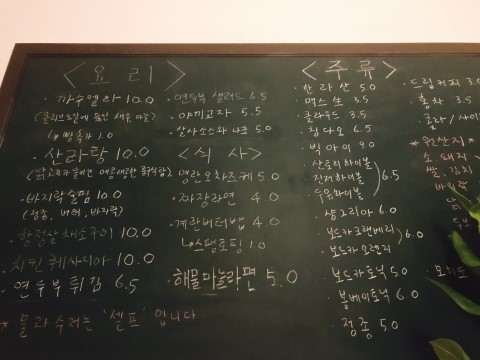 < 요리 >
· 까수엘라 10.0
빵추가 1.0
· 산라탕 10.0
· 바지락술찜 10.0
(청종, 버터, 바지락)
· 항정살 채소구이 10.0
· 치킨 퀘사디아 10.0
· 연두부 튀김 6.5
* 물과 수저는 '셀프' 입니다
· 연두부 샐러드 6.5
· 야끼교자 5.5
· 살사소스와 나쵸 5.0
< 식사 >
· 명란오차즈케 5.0
· 짜장라면 4.0
· 계란버터밥 4.0
스팸토핑 1.0
· 해물마늘라면 5.0
< 주류 >
· 한라산 5.0
· 맥스 生 3.5
· 클라우드 3.5
· 칭다오 6.5
· 빅아이 4.0
· 산토리하이볼
· 진저하이볼
· 두유하이볼
6.5
· 샹그리아 6.0
· 보드카크랜베리
· 보드카오렌지
6.0
· 보드카토닉 5.0
· 봄베이토닉 6.0
· 정종 5.0
· 드립커피 3.0
· 홍차 3.
· 콜라 / 사이
* 원산지
소 돼지
쌀, 김치
바지락
· 모히또